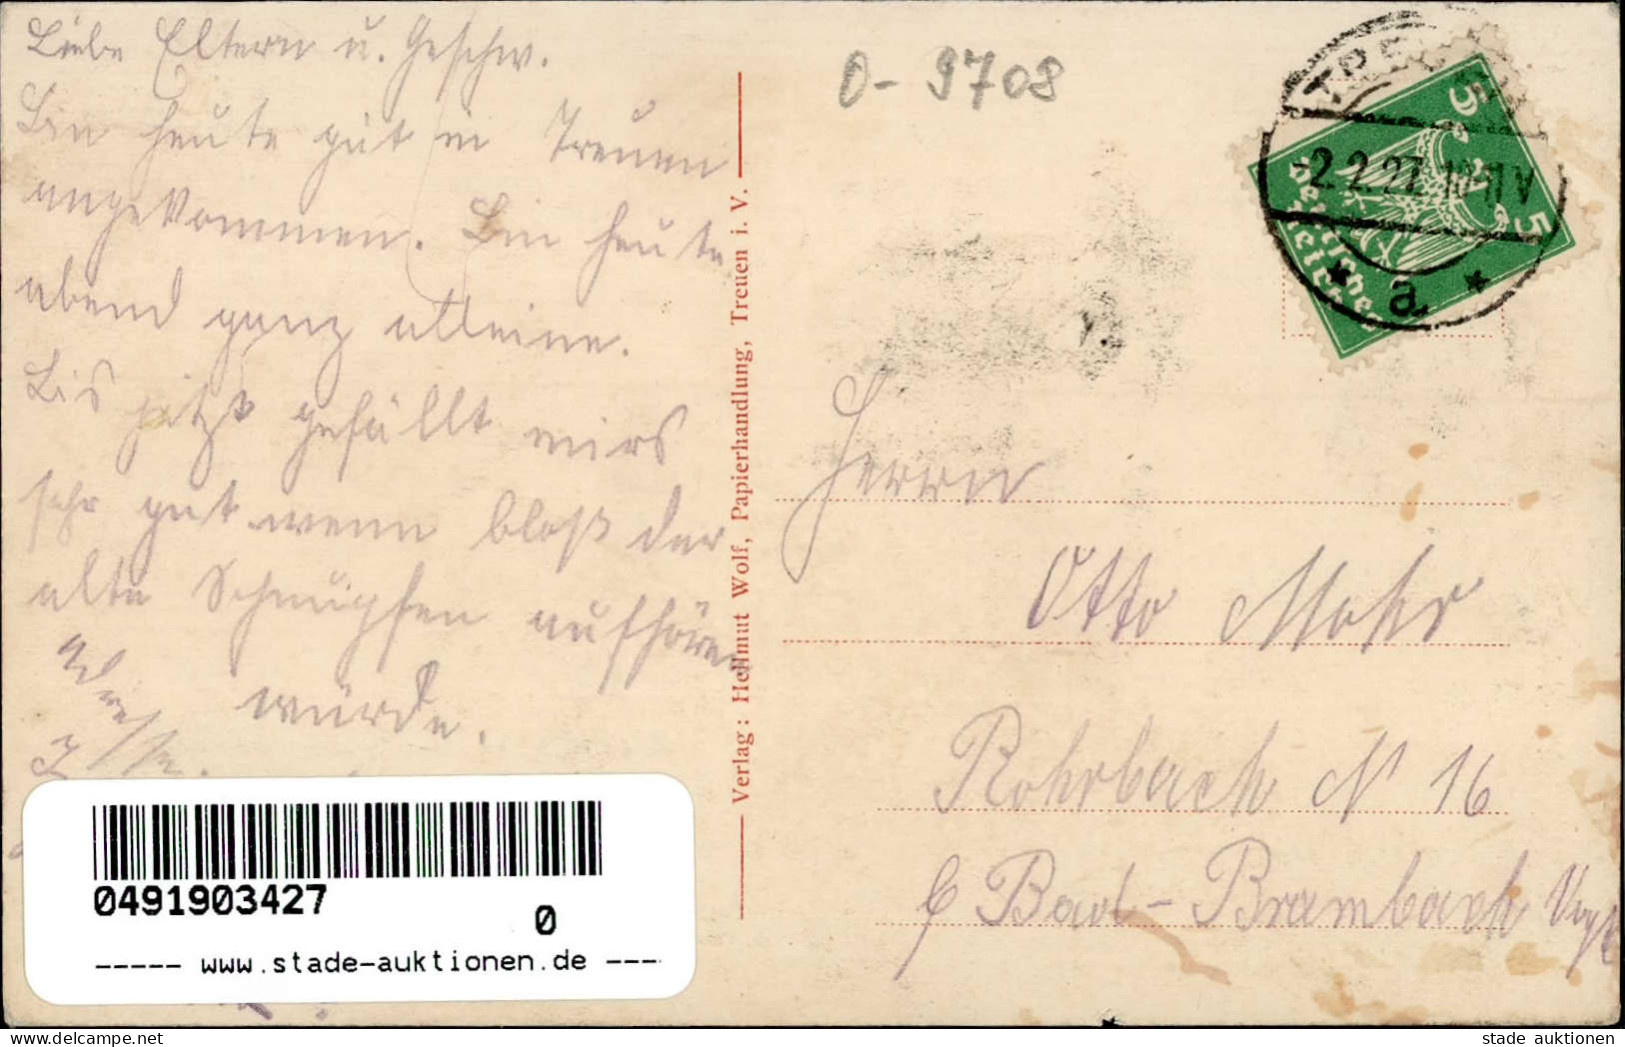 Liebe Eltern u. Geschw.
Bin heute gut in Treuen
angekommen. Bin heute
abend ganz alleine.
Bis jetzt gefällt mirs
sehr gut wenn bloß der
alte Schnupfen aufhören
würde.
Adresse
0-9708
TREUEN
-2.2.27 10-11V
* a *
5
5
Deutsches
Reich
Verlag: Hellmut Wolf, Papierhandlung, Treuen i. V.
Herrn
Otto Mohr
Rohrbach N 16
b Bad-Brambach Vogtl
0491903427
0
----- www.stade-auktionen.de ---
stade auktionen